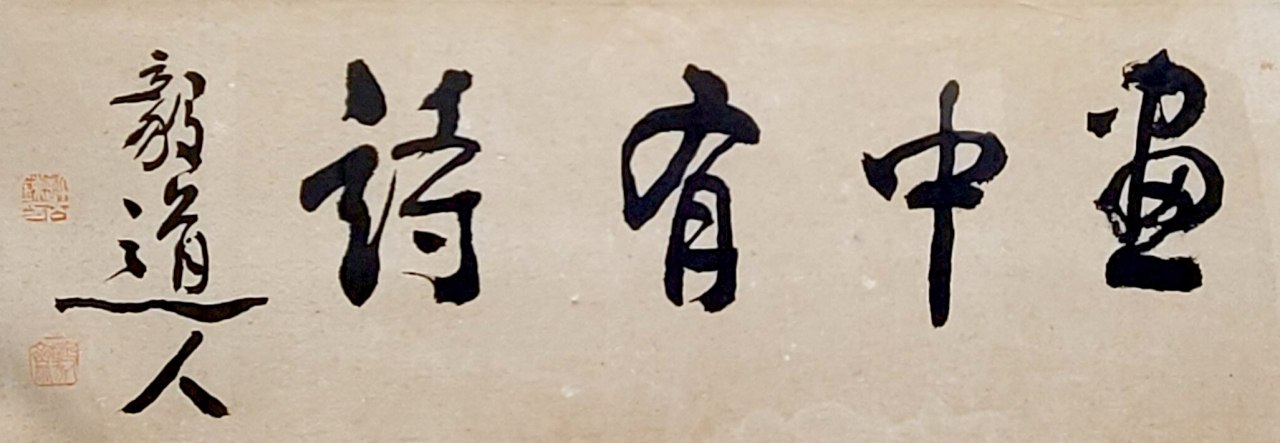 畫中有詩
毅道人